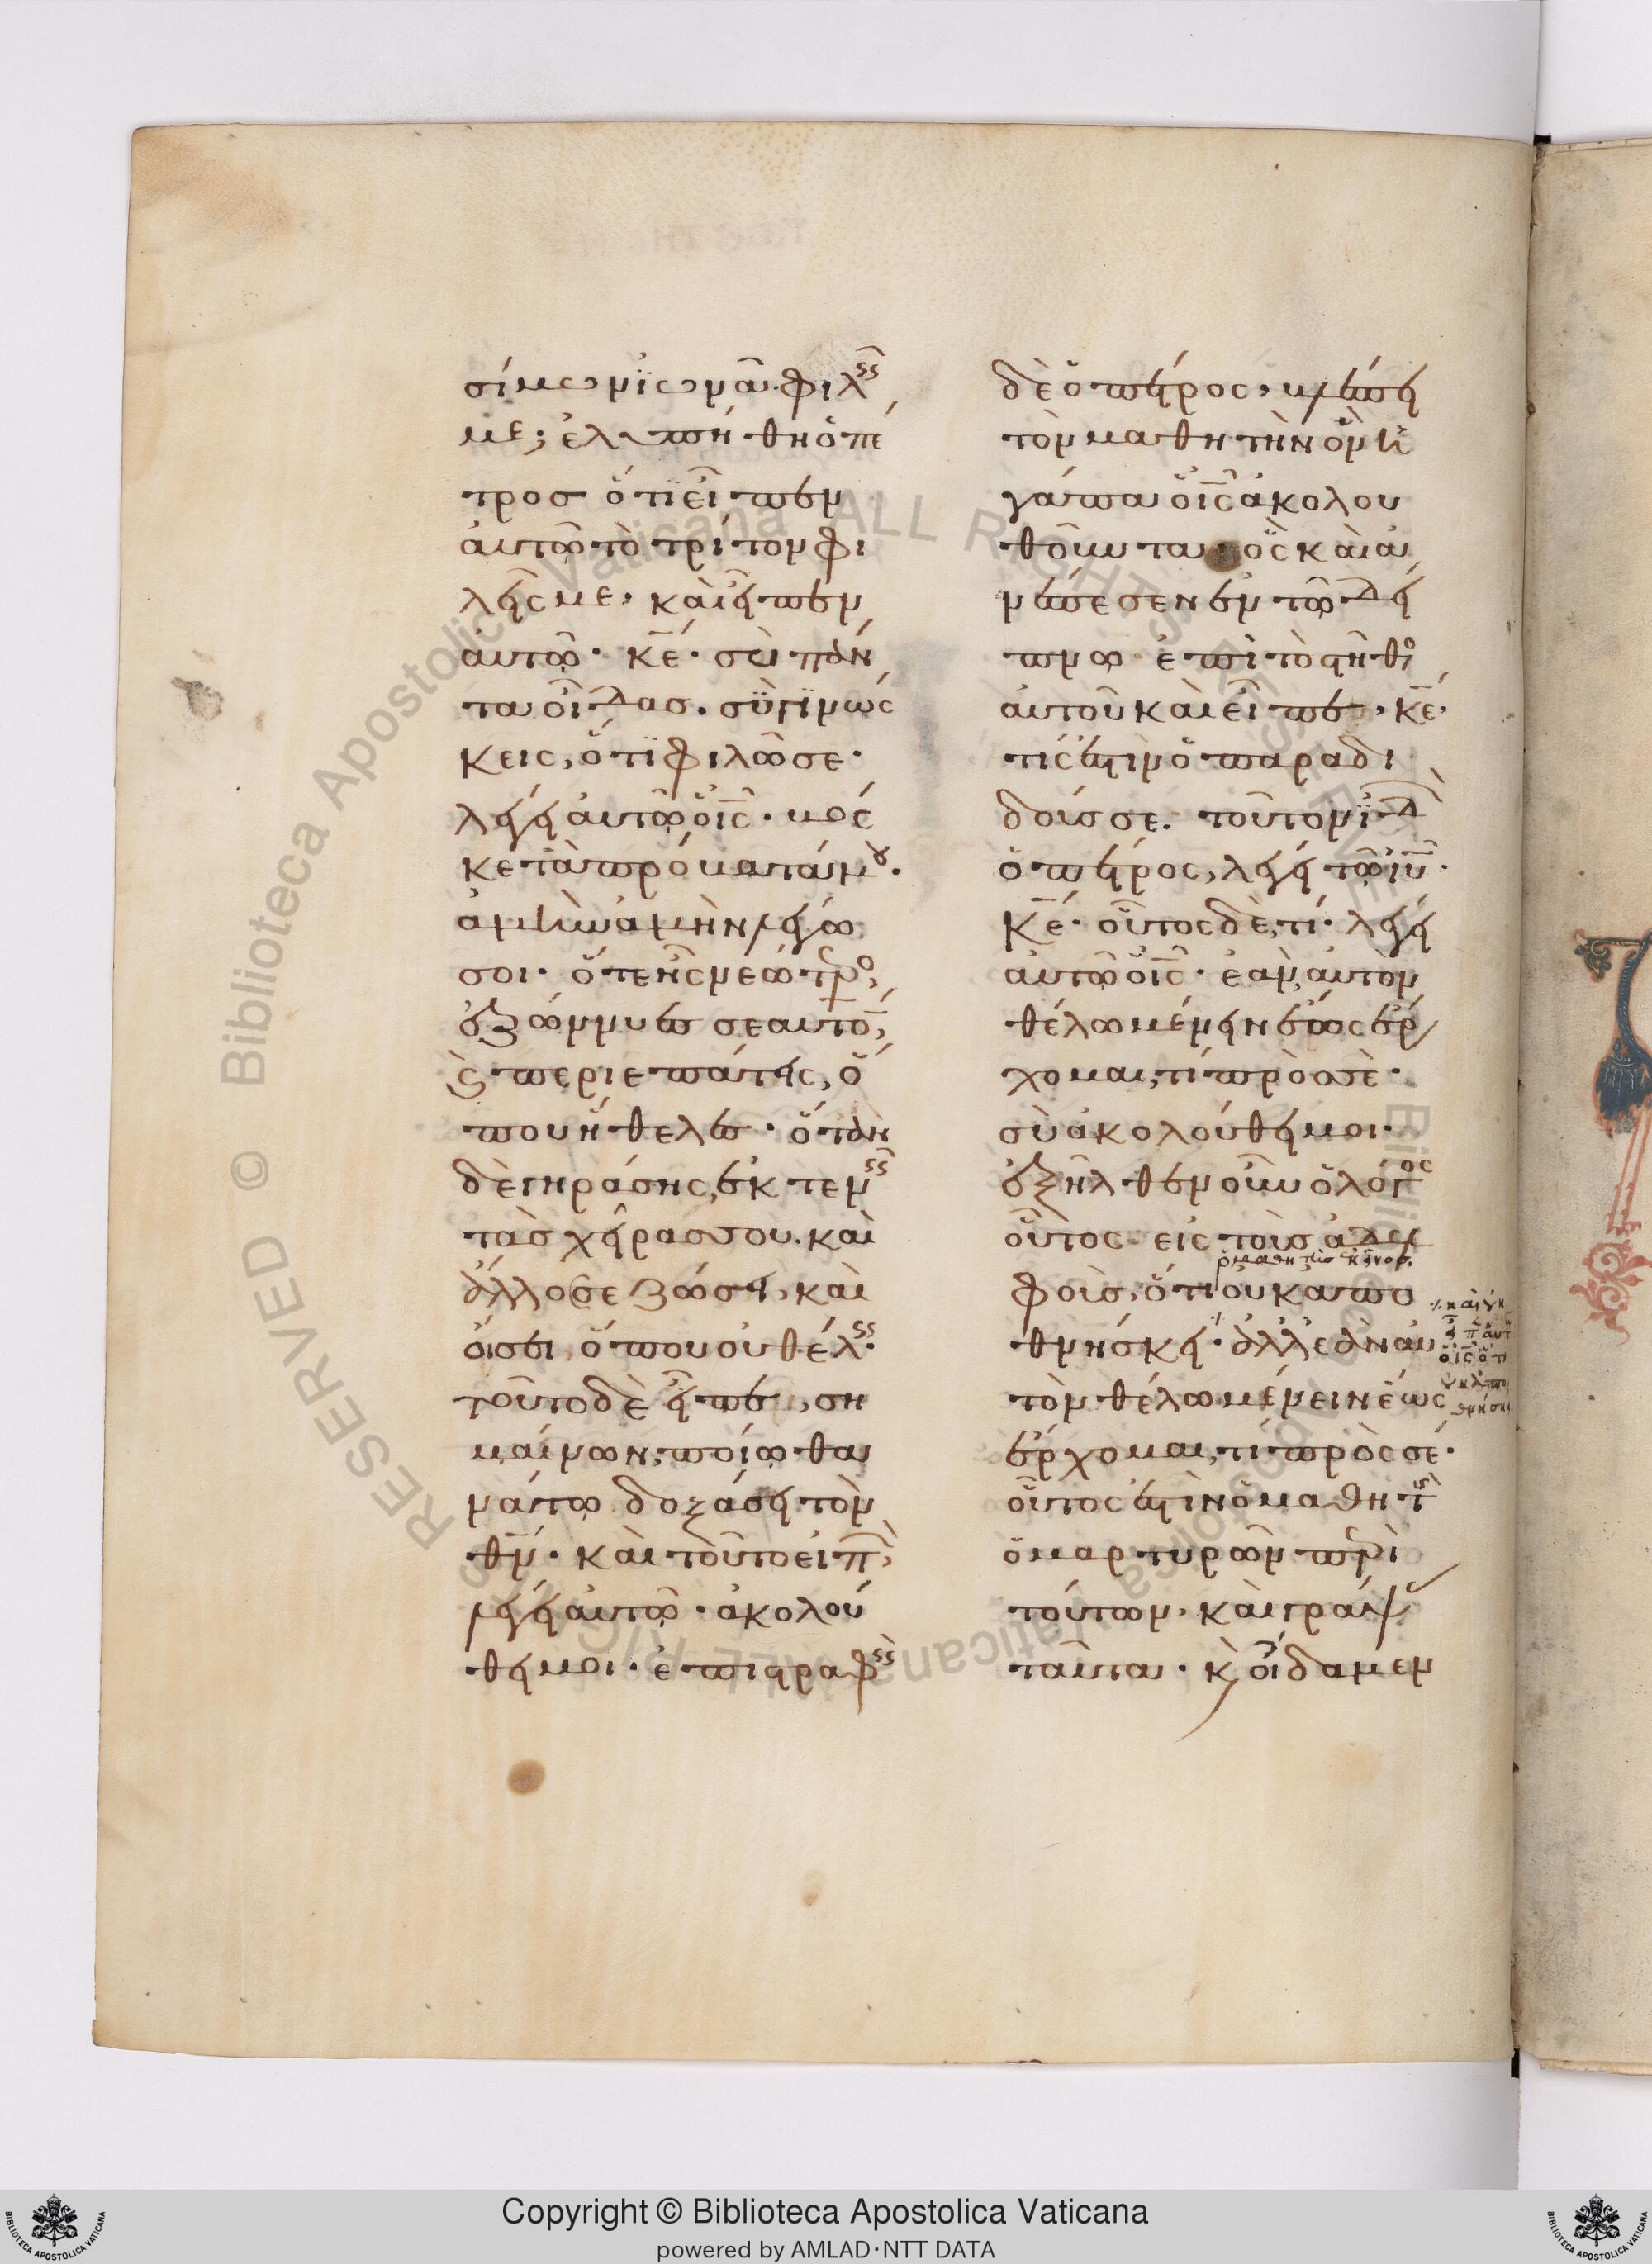 σίμων ϊωνᾶ· φιλεῖς
με; ἐλυπήθη ὁ πέ
τρος ὅτι εἶπεν
αὐτῷ τὸ τρίτον φι
λεῖς με, καὶ εἶπεν
αὐτῷ· κ̅ε̅· σὺ πάν
τα οἶδας. σὺ γινώς
κεις, ὅτι φιλῶ σε·
λέγει αὐτῷ ὁ ι̅ς̅· βός
κε τὰ πρόβατά μου.
ἀμὴν ἀμὴν λέγω
σοι· ὅτε ἦς νεώτερο,
ἐζώννυες σεαυτὸ,
κ περιεπάτεις, ὅ
που ἤθελες· ὅταν
δὲ γηράσης, ἐκτενεῖς
τὰς χεῖρας σου. καὶ
ἄλλος σε ζώσει, καὶ
οἴσει, ὅπου οὐ θέλεις·
τοῦτο δὲ εἶπε, ση
μαίνων, ποίω θα
νάτω δοξάσει τὸν
θ̅ν̅· καὶ τοῦτο εἰπὼ,
λέγει αὐτῷ· ἀκολού
θει μοι· ἐπιστραφεὶς
δὲ ὁ πέτρος, βλέπει
τὸν μαθητὴν ὃν ἠ
γάπα ὁ ι̅ς̅ ἀκολου
θοῦντα· ὃς καὶ ἀ
νέπεσεν ἐν τῷ δεί
πνω ἐπὶ τὸ στῆθο
αὐτοῦ καὶ εἶπε, κ̅ε̅,
τίς ἐστιν ὁ παραδι
δούς σε. τοῦτον ϊδὼ
ὁ πέτρος, λέγει τῷ ι̅υ̅·
κ̅ε̅· οὗτος δὲ, τί· λέγει
αὐτῷ ὁ ι̅ς̅· ἐὰν αὐτὸν
θέλω μένειν ἕως ἔρ
χομαι, τί πρὸς σὲ·
σὺ ἀκολούθει μοι·
ἐξῆλθεν οὖν ὁ λόγος
οὗτος εἰς τοὺς ἀδελ
ὁ μαθητὴς ἐκεῖνος,
φοὺς, ὅτι οὐκ ἀπο
θνήσκει· ἀλλ' ἐὰν αὐ
τὸν θέλω μένειν ἕως
ἔρχομαι, τί πρὸς σέ·
οὗτος ἐστὶν ὁ μαθητὴς
ὁ μαρτυρῶν περὶ
τούτων, καὶ γράψας
ταῦτα· κ οἴδαμεν
καὶ οὐκ
εἶπ αὐτ
ὁ ι̅ς̅ ὅτι
οὐκ ἀπο
θνήσκει
Copyright © Biblioteca Apostolica Vaticana
powered by AMLAD·NTT DATA